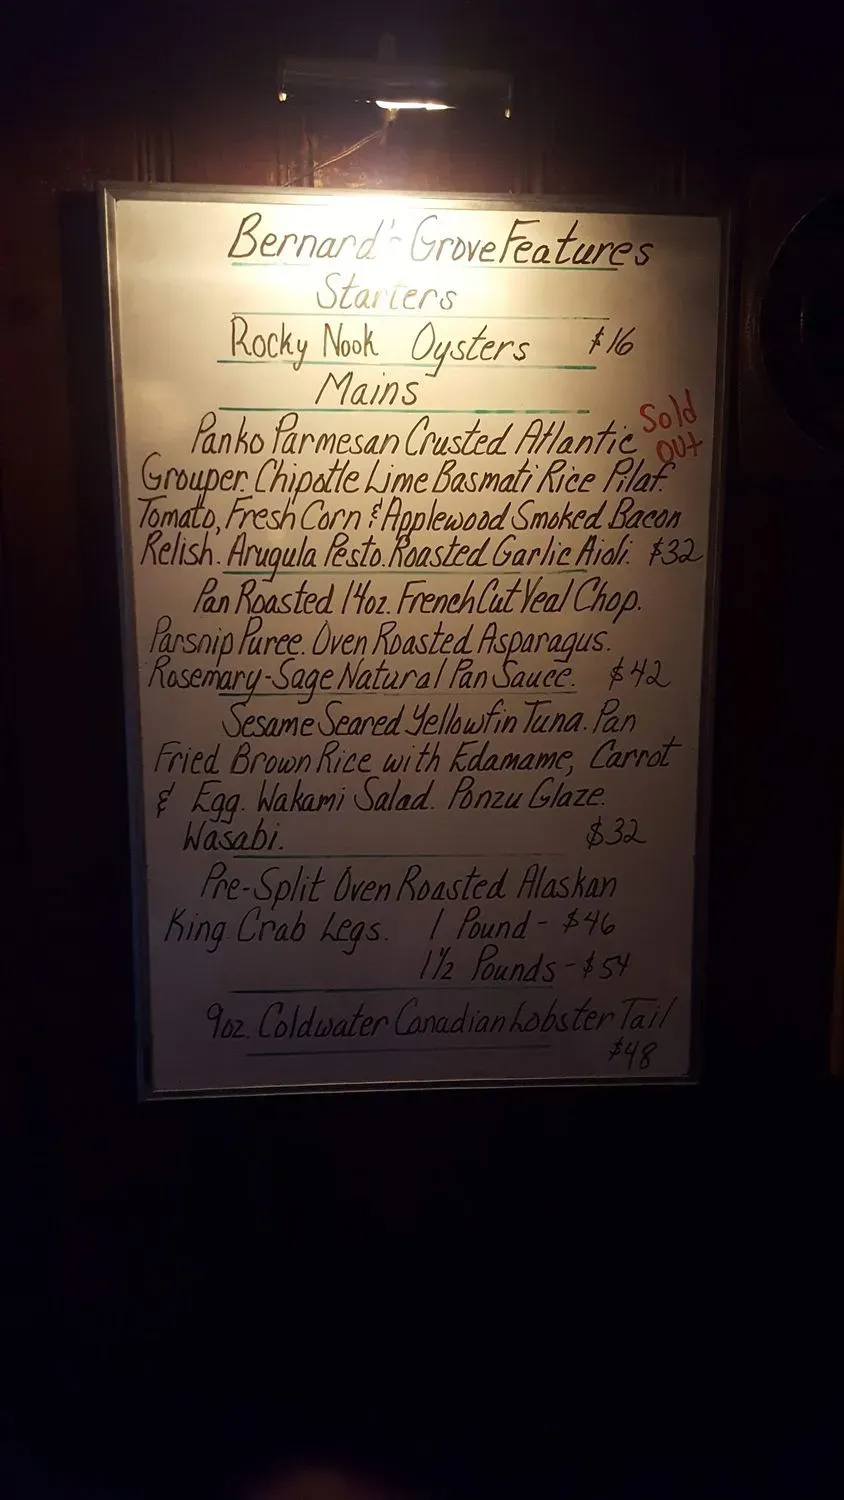 Bernard's Grove Features
Starters
Rocky Nook Oysters $16
Mains
Panko Parmesan Crusted Atlantic Sold Out
Grouper. Chipotle Lime Basmati Rice Pilaf.
Tomato, Fresh Corn & Applewood Smoked Bacon
Relish. Arugula Pesto. Roasted Garlic Aioli. $32
Pan Roasted 14oz. French Cut Veal Chop.
Parsnip Puree. Oven Roasted Asparagus.
Rosemary-Sage Natural Pan Sauce. $42
Sesame Seared Yellowfin Tuna. Pan
Fried Brown Rice with Edamame, Carrot
& Egg. Wakami Salad. Ponzu Glaze.
Wasabi. $32
Pre-Split Oven Roasted Alaskan
King Crab Legs. 1 Pound - $46
1½ Pounds - $54
9oz. Coldwater Canadian Lobster Tail
$48